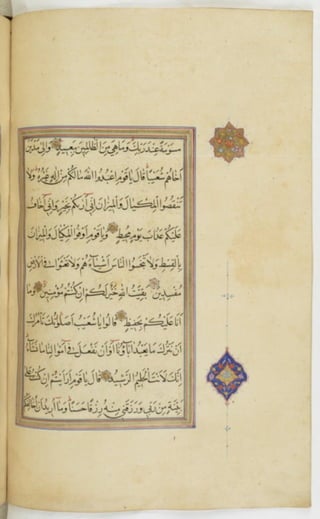 مسومة عند ربك وما هي من الظالمين ببعيد والى مدين
اخاهم شعيبا قال يا قوم اعبدوا الله ما لكم من اله غيره ولا
تنقصوا المكيال والميزان انى اريكم بخير وانى اخاف
عليكم عذاب يوم محيط ويا قوم اوفوا المكيال والميزان
بالقسط ولا تبخسوا الناس اشياءهم ولا تعثوا فى الارض
مفسدين بقيت الله خير لكم ان كنتم مؤمنين وما
انا عليكم بحفيظ قالوا يا شعيب اصلوتك تامرك
ان نترك ما يعبد اباؤنا او ان نفعل فى اموالنا ما نشاء
انك لانت الحليم الرشيد قال يا قوم ارايتم ان كنت على
بينة من ربى ورزقنى منه رزقا حسنا وما اريد ان اخالفكم